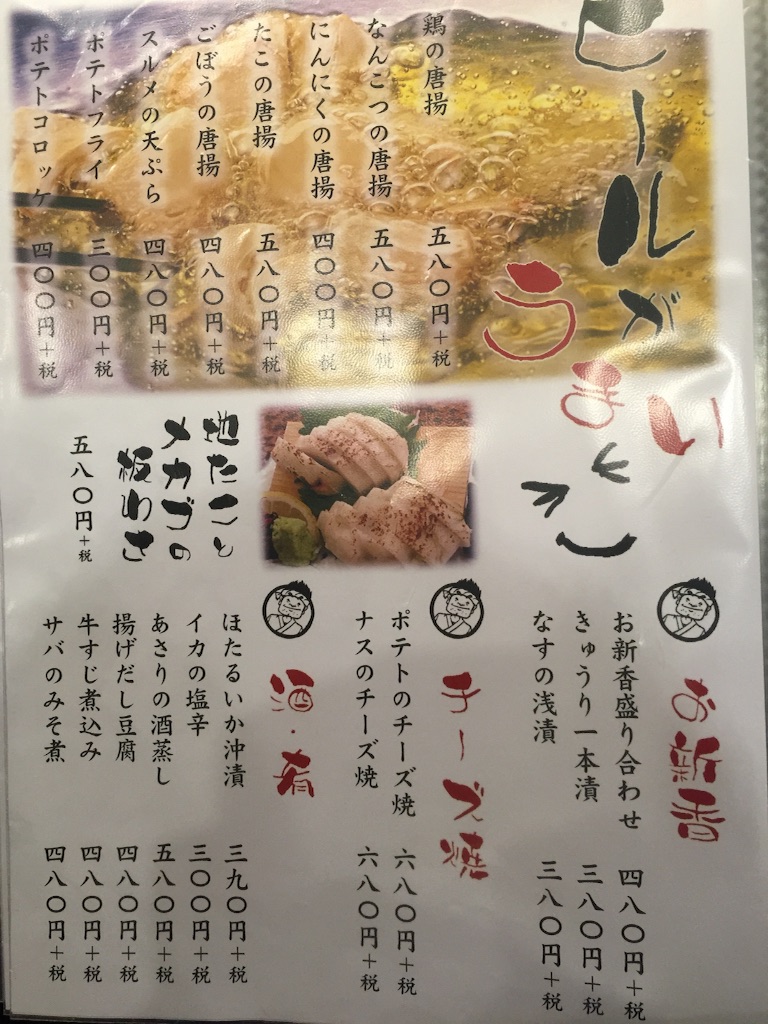 ビールが
うまい
とり
鶏の唐揚 五八〇円+税
なんこつの唐揚 五八〇円+税
にんにくの唐揚 四〇〇円+税
たこの唐揚 五八〇円+税
ごぼうの唐揚 四八〇円+税
スルメの天ぷら 四八〇円+税
ポテトフライ 三〇〇円+税
ポテトコロッケ 四〇〇円+税
地たこと
メカブの
板わさ
五八〇円+税
お新香
お新香盛り合わせ 四八〇円+税
きゅうり一本漬 三八〇円+税
なすの浅漬 三八〇円+税
チーズ焼
ポテトのチーズ焼 六八〇円+税
ナスのチーズ焼 六八〇円+税
酒・肴
ほたるいか沖漬 三九〇円+税
イカの塩辛 三〇〇円+税
あさりの酒蒸し 五八〇円+税
揚げだし豆腐 四八〇円+税
牛すじ煮込み 四八〇円+税
サバのみそ煮 四八〇円+税